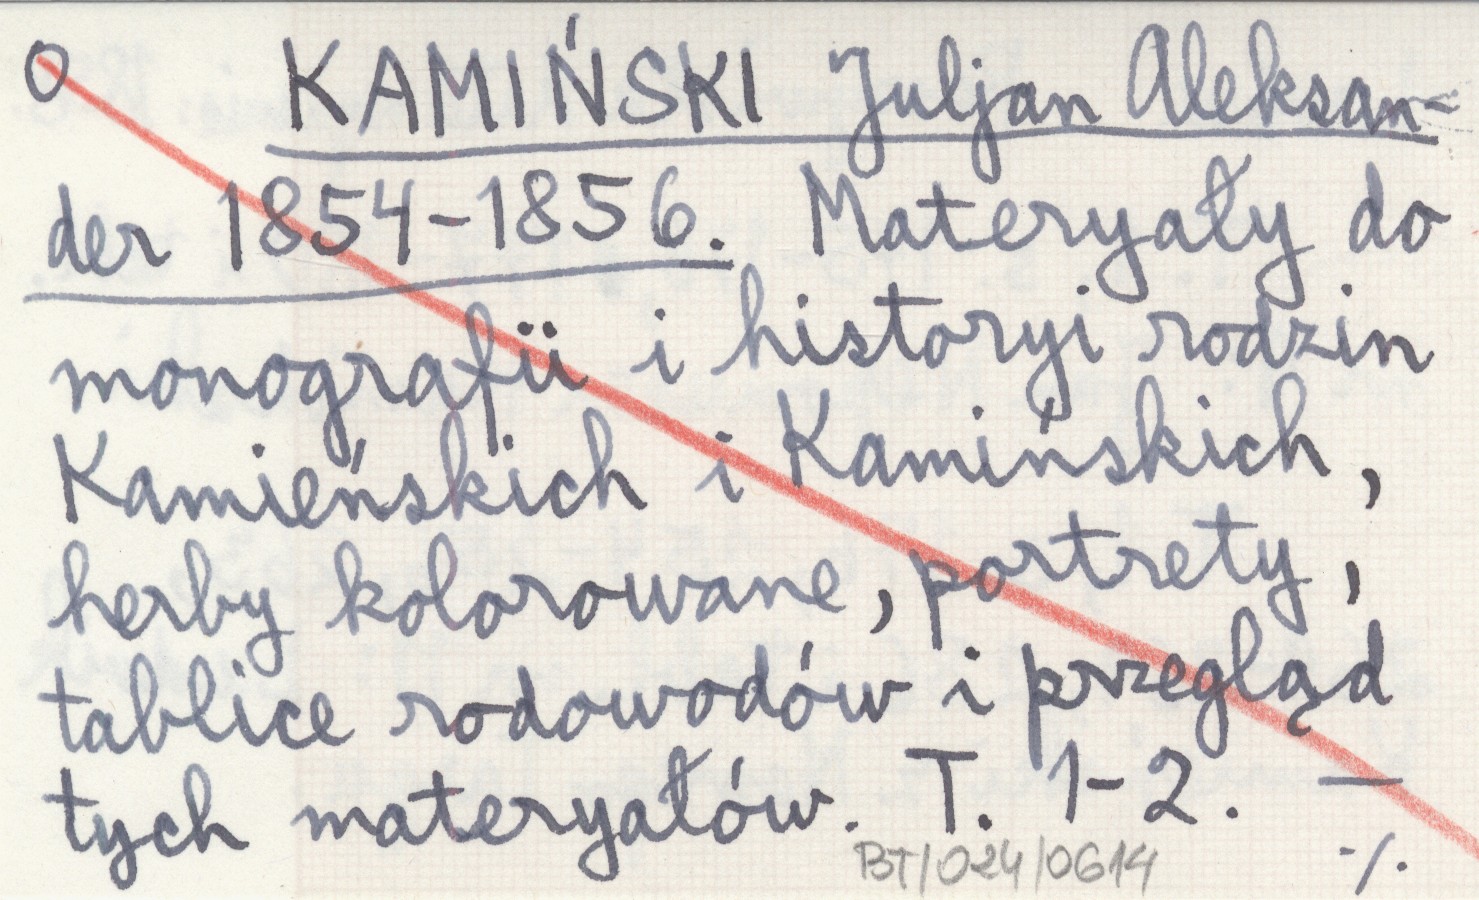 O KAMIŃSKI Juljan Aleksan-
der 1854-1856. Materyały do
monografii i historyi rodzin
Kamieńskich i Kamińskich,
herby kolorowane, portrety,
tablice rodowodów i przegląd
tych materyałów. T. 1-2. —
BT/024/0614 -/.